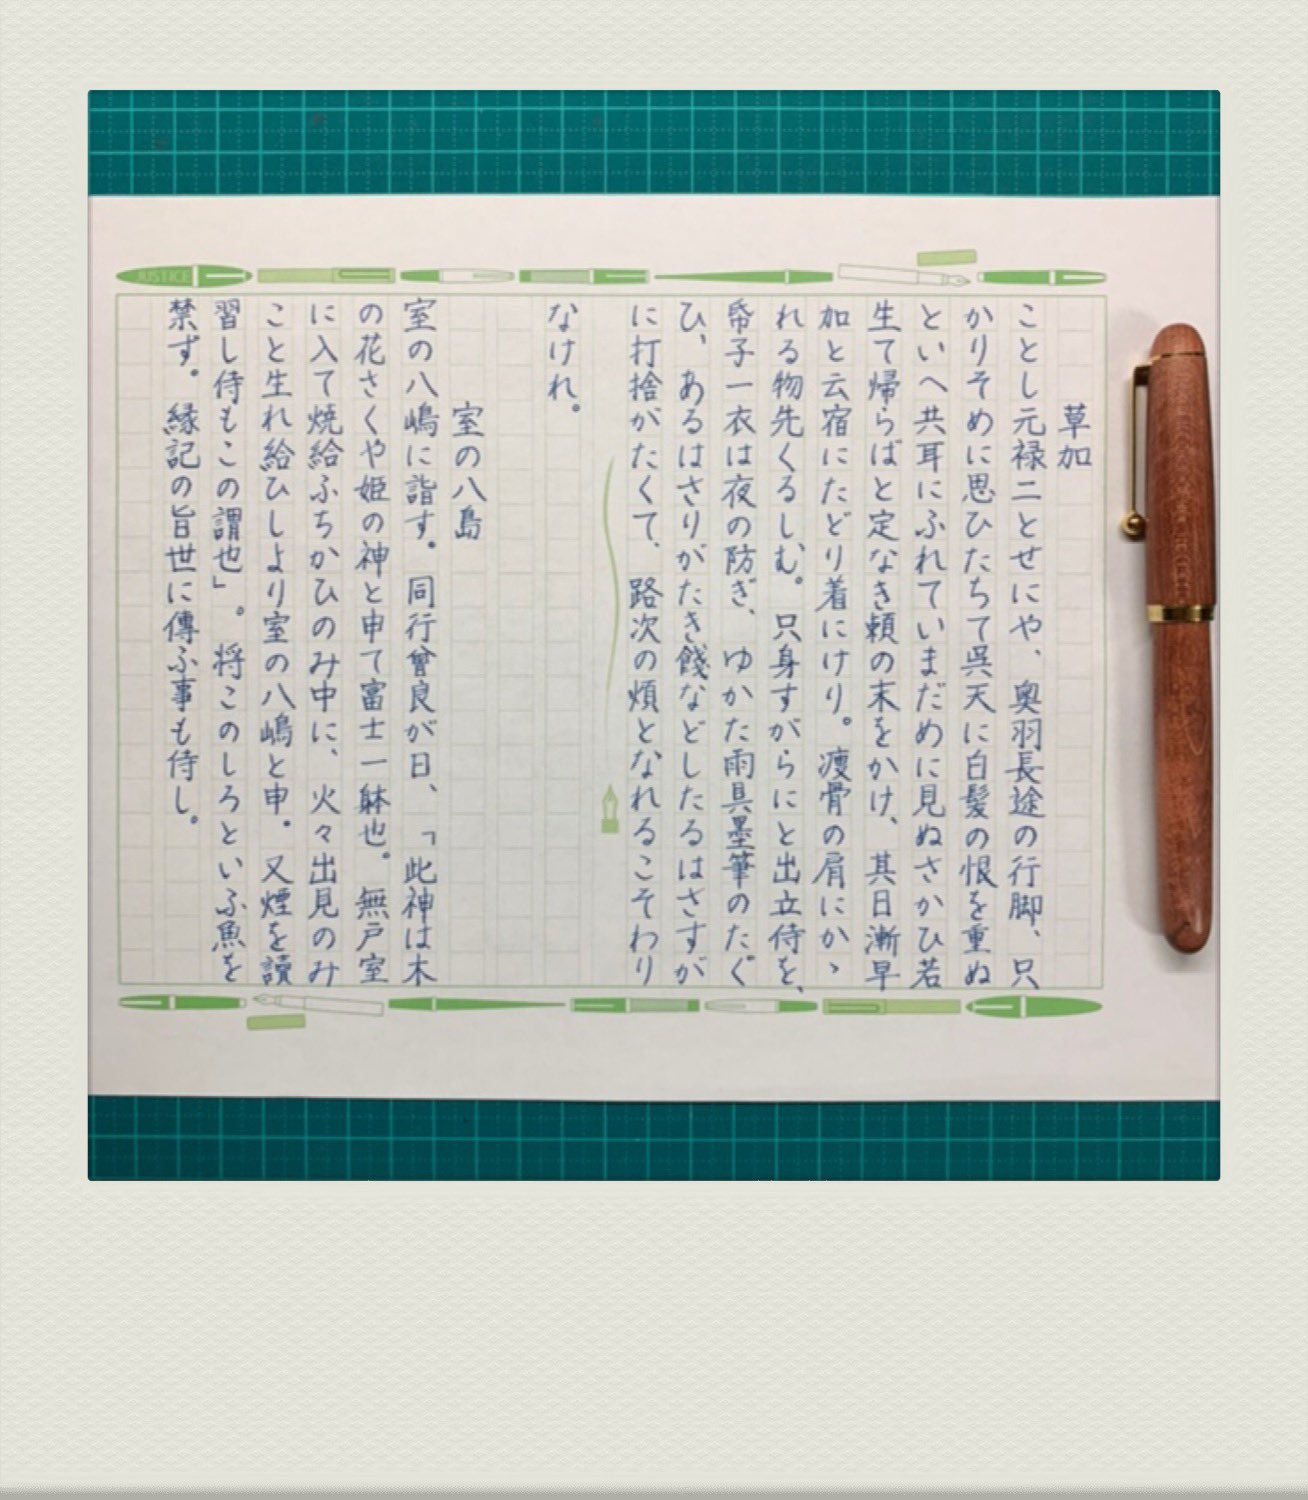 JUSTICE
草加
ことし元禄二とせにや、奥羽長途の行脚、只
かりそめに思ひたちて呉天に白髪の恨を重ぬ
といへ共耳にふれていまだめに見ぬさかひ若
生て帰らばと定なき頼の末をかけ、其日漸早
加と云宿にたどり着にけり。痩骨の肩にかゝ
れる物先くるしむ。只身すがらにと出立侍を、
帋子一衣は夜の防ぎ、ゆかた雨具墨筆のたぐ
ひ、あるはさりがたき餞などしたるはさすが
に打捨がたくて、路次の煩となれるこそわり
なけれ。
室の八島
室の八嶋に詣す。同行曾良が日、「此神は木
の花さくや姫の神と申て富士一躰也。無戸室
に入て焼給ふちかひのみ中に、火々出見のみ
こと生れ給ひしより室の八嶋と申。又煙を讀
習し侍もこの謂也」。将このしろといふ魚を
禁ず。縁記の旨世に傳ふ事も侍し。